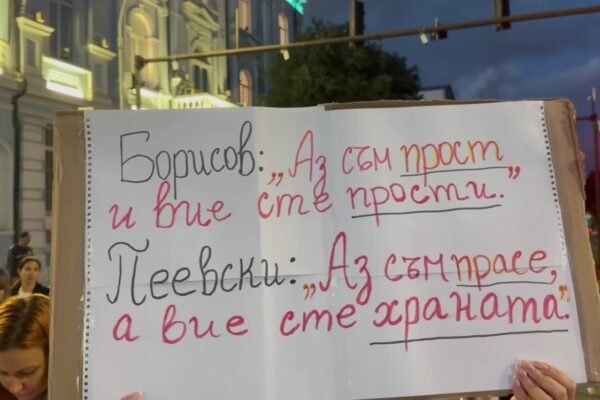 Борисов: „Аз съм прост
и вие сте прости.”
Пеевски: „Аз съм прасе,
а вие сте храната”.